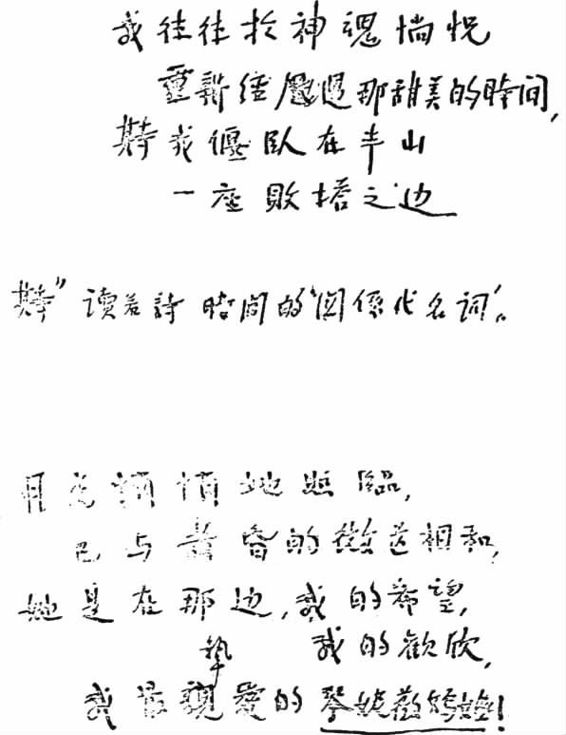 我往往於神魂惝怳
重新经歷過那甜美的時间,
我偃臥在半山
一座敗塔之边
” 读若詩 時间的“関係代名词”。
月光悄悄地照臨,
已与黄昏的微芒相和,
她是在那边,我的希望,
我的歡欣,
我最親爱的!